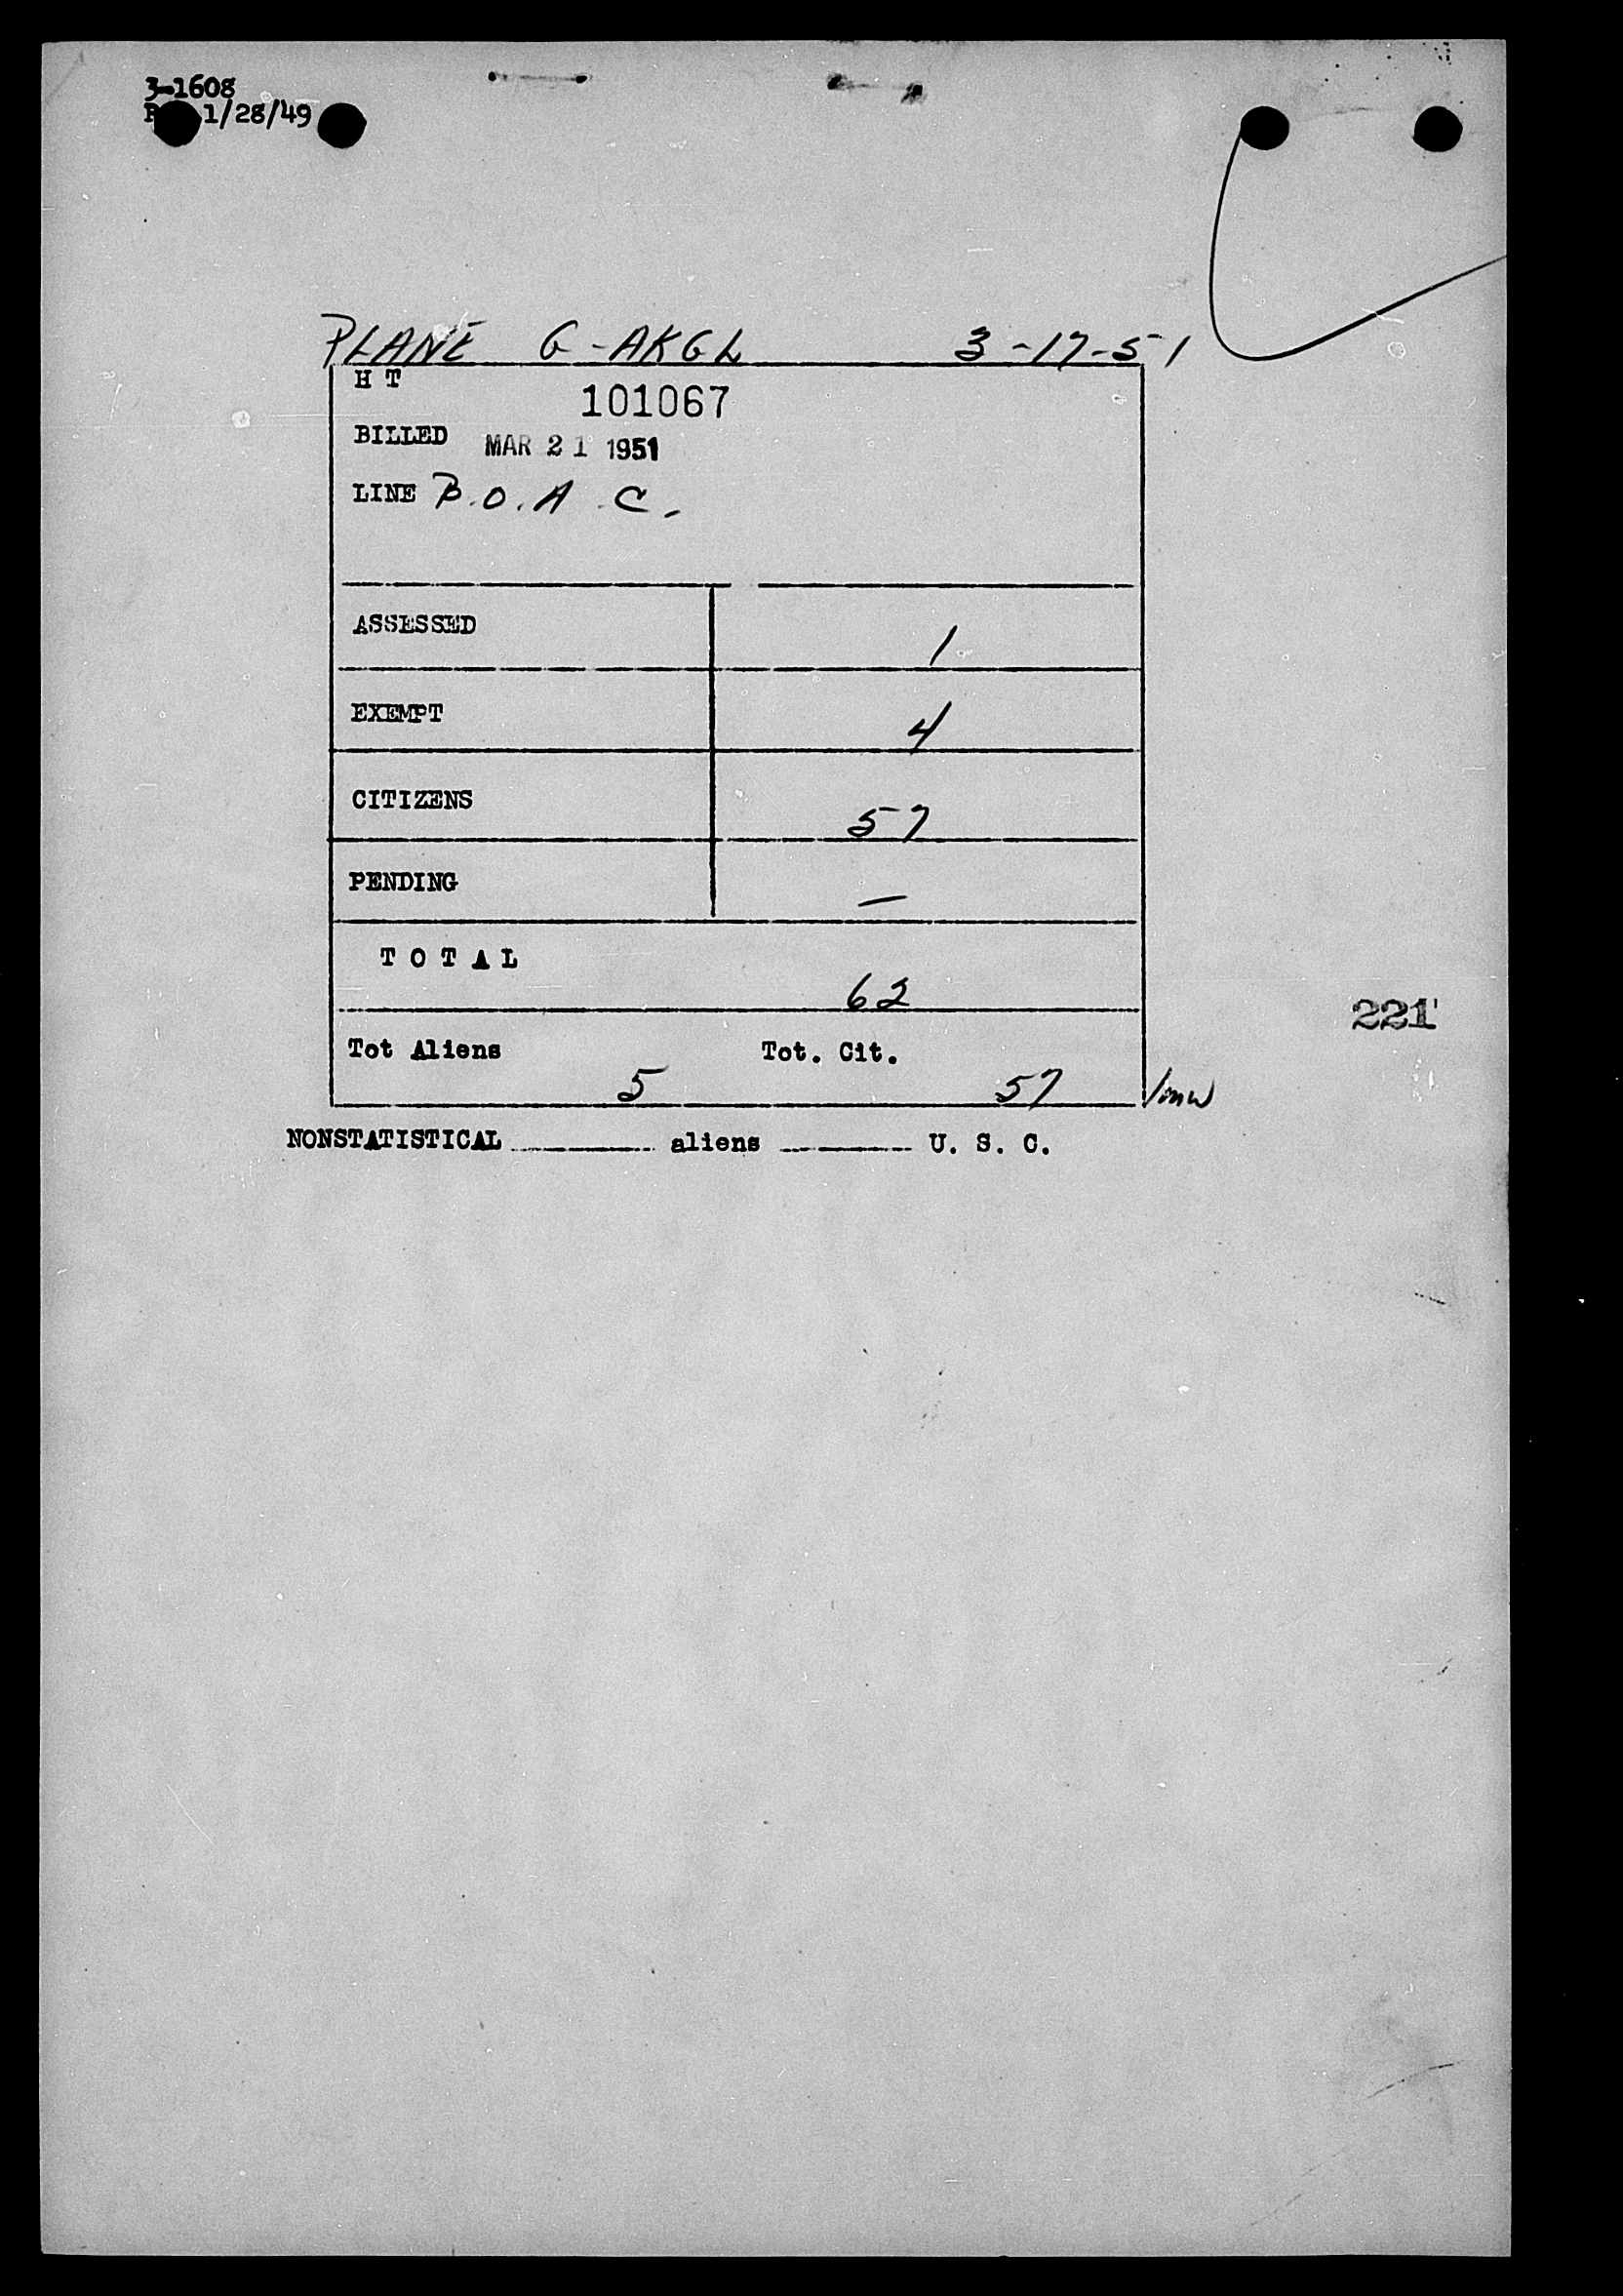 3-1608
1/28/49
PLANE G-AKGL 3-17-51
H T
101067
BILLED MAR 21 1951
LINE B.O.A.C.
ASSESSED 1
EXEMPT 4
CITIZENS 57
PENDING —
TOTAL
62
221
Tot Aliens Tot. Cit.
5 57 /mw
NONSTATISTICAL ______ aliens ______ U. S. C.